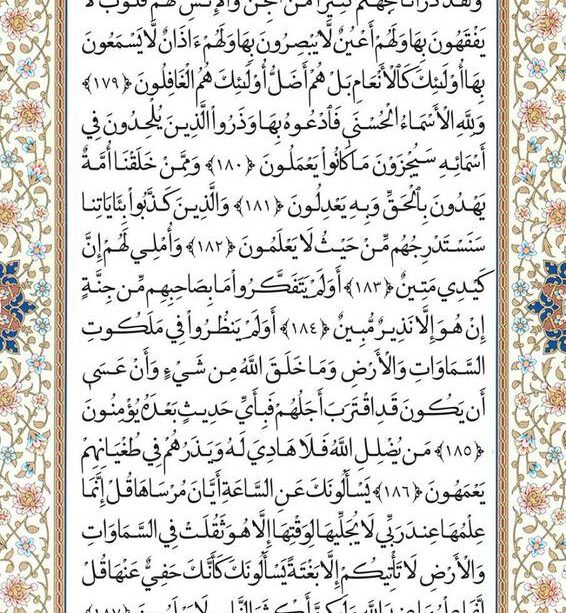 ولقد ذرأنا لجهنم كثيرا من الجن والإنس لهم قلوب لا
يَفْقَهُونَ بِهَا وَلَهُمْ أَعْيُنٌ لَّا يُبْصِرُونَ بِهَا وَلَهُمْ ءَاذَانٌ لَّا يَسْمَعُونَ
بِهَا أُوْلَئِكَ كَالْأَنْعَامِ بَلْ هُمْ أَضَلُّ أُوْلَئِكَ هُمُ الْغَافِلُونَ ﴿١٧٩﴾
وَلِلَّهِ الْأَسْمَاءُ الْحُسْنَى فَادْعُوهُ بِهَا وَذَرُواْ الَّذِينَ يُلْحِدُونَ فِي
أَسْمَائِهِ سَيُجْزَوْنَ مَا كَانُواْ يَعْمَلُونَ ﴿١٨٠﴾ وَمِمَّنْ خَلَقْنَا أُمَّةٌ
يَهْدُونَ بِالْحَقِّ وَبِهِ يَعْدِلُونَ ﴿١٨١﴾ وَالَّذِينَ كَذَّبُواْ بِئَايَاتِنَا
سَنَسْتَدْرِجُهُم مِّنْ حَيْثُ لَا يَعْلَمُونَ ﴿١٨٢﴾ وَأُمْلِي لَهُمْ إِنَّ
كَيْدِي مَتِينٌ ﴿١٨٣﴾ أَوَلَمْ يَتَفَكَّرُواْ مَا بِصَاحِبِهِم مِّن جِنَّةٍ
إِنْ هُوَ إِلَّا نَذِيرٌ مُّبِينٌ ﴿١٨٤﴾ أَوَلَمْ يَنظُرُواْ فِي مَلَكُوتِ
السَّمَاوَاتِ وَالْأَرْضِ وَمَا خَلَقَ اللَّهُ مِن شَيْءٍ وَأَنْ عَسَى
أَن يَكُونَ قَدِ اقْتَرَبَ أَجَلُهُمْ فَبِأَيِّ حَدِيثٍ بَعْدَهُ يُؤْمِنُونَ
﴿١٨٥﴾ مَن يُضْلِلِ اللَّهُ فَلَا هَادِيَ لَهُ وَيَذَرُهُمْ فِي طُغْيَانِهِمْ
يَعْمَهُونَ ﴿١٨٦﴾ يَسْأَلُونَكَ عَنِ السَّاعَةِ أَيَّانَ مُرْسَاهَا قُلْ إِنَّمَا
عِلْمُهَا عِندَ رَبِّي لَا يُجَلِّيهَا لِوَقْتِهَا إِلَّا هُوَ ثَقُلَتْ فِي السَّمَاوَاتِ
وَالْأَرْضِ لَا تَأْتِيكُمْ إِلَّا بَغْتَةً يَسْأَلُونَكَ كَأَنَّكَ حَفِيٌّ عَنْهَا قُلْ
إنما علمها عند الله ولكن أكثر الناس لا يعلمون ﴿١٨٧﴾